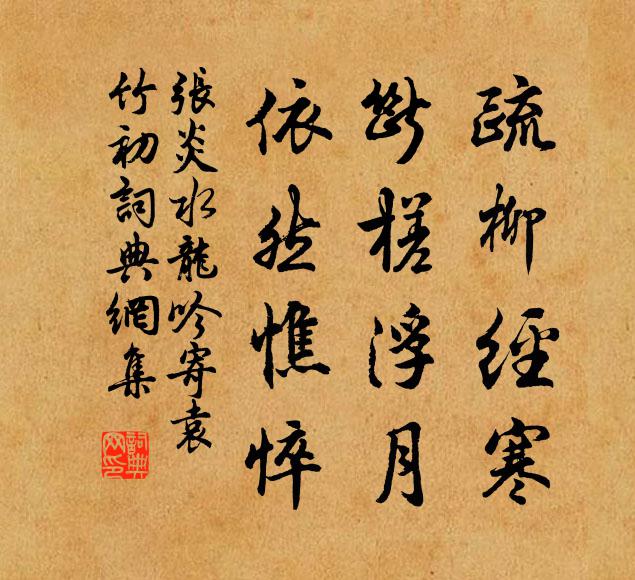 疏柳經寒
斷槎浮月
依然憔悴
張炎水龍吟寄袁
竹初詞典網集
詞典網印